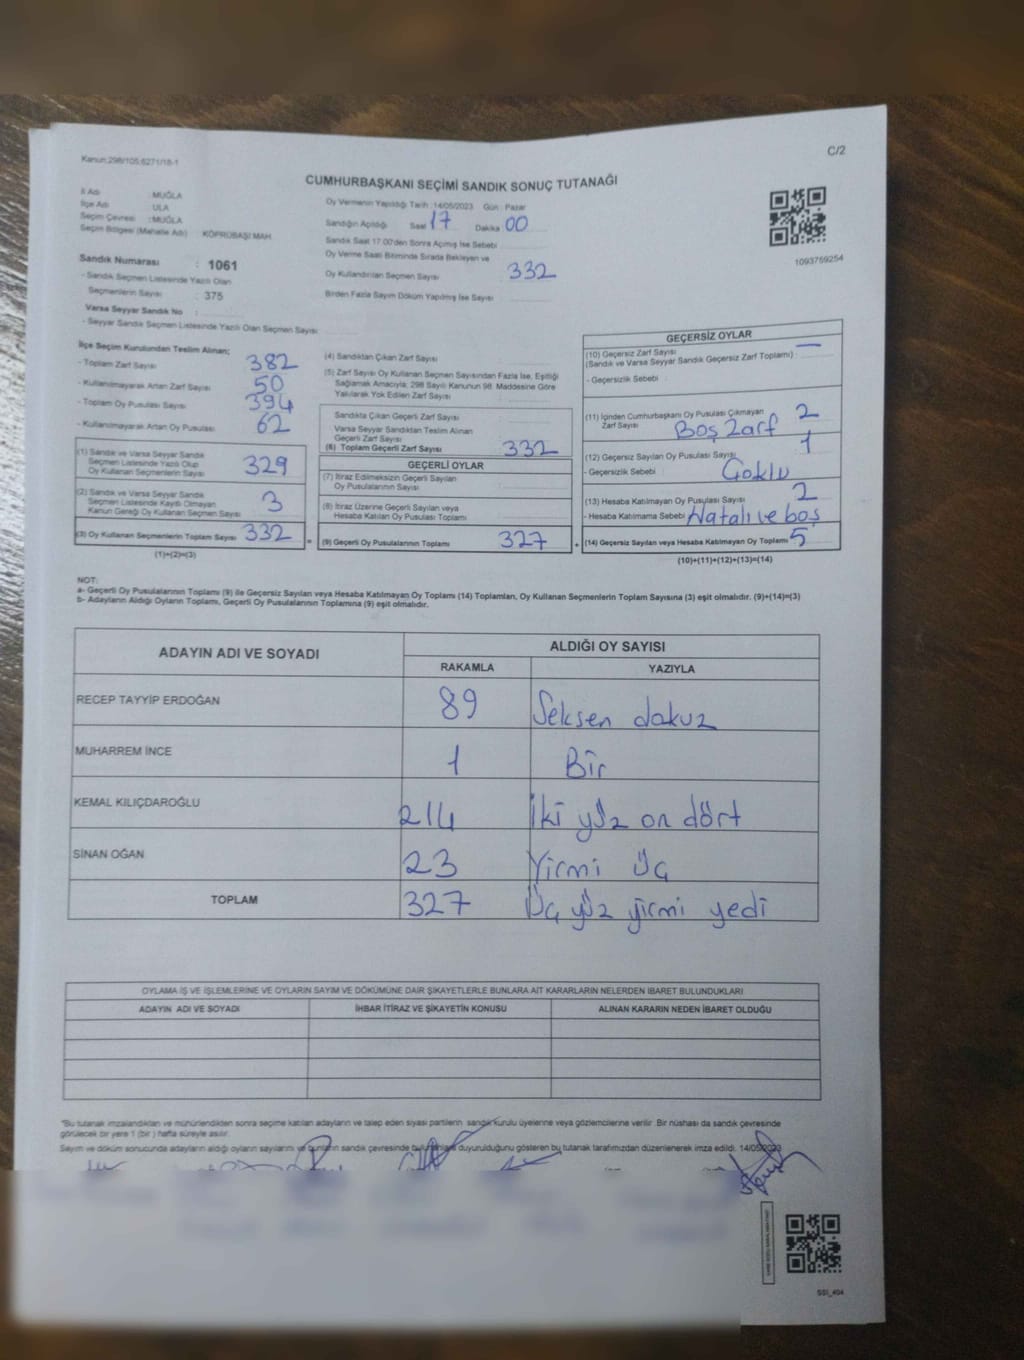 Kanun:298/105,6271/18-1
C/2
CUMHURBAŞKANI SEÇİMİ SANDIK SONUÇ TUTANAĞI
İl Adı : MUĞLA
İlçe Adı : ULA
Seçim Çevresi : MUĞLA
Seçim Bölgesi (Mahalle Adı) KÖPRÜBAŞI MAH.
Sandık Numarası : 1061
- Sandık Seçmen Listesinde Yazılı Olan
Seçmenlerin Sayısı : 375
Varsa Seyyar Sandık No :
- Seyyar Sandık Seçmen Listesinde Yazılı Olan Seçmen Sayısı :
Oy Vermenin Yapıldığı Tarih : 14/05/2023 Gün : Pazar
Sandığın Açıldığı Saat 17 Dakika 00
Sandık Saat 17.00'den Sonra Açılmış İse Sebebi
Oy Verme Saati Bitiminde Sırada Bekleyen ve
Oy Kullandırılan Seçmen Sayısı 332
Birden Fazla Sayım Döküm Yapılmış İse Sayısı
1093769254
İlçe Seçim Kurulundan Teslim Alınan;
- Toplam Zarf Sayısı 382
- Kullanılmayarak Artan Zarf Sayısı 50
- Toplam Oy Pusulası Sayısı 394
- Kullanılmayarak Artan Oy Pusulası 62
(1) Sandık ve Varsa Seyyar Sandık
Seçmen Listesinde Yazılı Olup
Oy Kullanan Seçmenlerin Sayısı 329
(2) Sandık ve Varsa Seyyar Sandık
Seçmen Listesinde Kayıtlı Olmayan
Kanun Gereği Oy Kullanan Seçmen Sayısı 3
(3) Oy Kullanan Seçmenlerin Toplam Sayısı 332
(1)+(2)=(3)
(4) Sandıktan Çıkan Zarf Sayısı
(5) Zarf Sayısı Oy Kullanan Seçmen Sayısından Fazla İse, Eşitliği
Sağlamak Amacıyla; 298 Sayılı Kanunun 98. Maddesine Göre
Yakılarak Yok Edilen Zarf Sayısı
Sandıkta Çıkan Geçerli Zarf Sayısı
Varsa Seyyar Sandıktan Teslim Alınan
Geçerli Zarf Sayısı
(6) Toplam Geçerli Zarf Sayısı 332
GEÇERLİ OYLAR
(7) İtiraz Edilmeksizin Geçerli Sayılan
Oy Pusulalarının Sayısı
(8) İtiraz Üzerine Geçerli Sayılan veya
Hesaba Katılan Oy Pusulası Toplamı
= (9) Geçerli Oy Pusulalarının Toplamı 327 +
GEÇERSİZ OYLAR
(10) Geçersiz Zarf Sayısı
(Sandık ve Varsa Seyyar Sandık Geçersiz Zarf Toplamı) : —
- Geçersizlik Sebebi :
(11) İçinden Cumhurbaşkanı Oy Pusulası Çıkmayan
Zarf Sayısı 2
Boş Zarf
(12) Geçersiz Sayılan Oy Pusulası Sayısı 1
- Geçersizlik Sebebi Çoklu
(13) Hesaba Katılmayan Oy Pusulası Sayısı 2
- Hesaba Katılmama Sebebi Hatalı ve boş
(14) Geçersiz Sayılan veya Hesaba Katılmayan Oy Toplamı 5
(10)+(11)+(12)+(13)=(14)
NOT:
a- Geçerli Oy Pusulalarının Toplamı (9) ile Geçersiz Sayılan veya Hesaba Katılmayan Oy Toplamı (14) Toplamları, Oy Kullanan Seçmenlerin Toplam Sayısına (3) eşit olmalıdır. (9)+(14)=(3)
b- Adayların Aldığı Oyların Toplamı, Geçerli Oy Pusulalarının Toplamına (9) eşit olmalıdır.
ADAYIN ADI VE SOYADI ALDIĞI OY SAYISI
RAKAMLA YAZIYLA
RECEP TAYYİP ERDOĞAN 89 Seksen dokuz
MUHARREM İNCE 1 Bir
KEMAL KILIÇDAROĞLU 214 İki yüz on dört
SİNAN OĞAN 23 Yirmi Üç
TOPLAM 327 Üç yüz yirmi yedi
OYLAMA İŞ VE İŞLEMLERİNE VE OYLARIN SAYIM VE DÖKÜMÜNE DAİR ŞİKAYETLERLE BUNLARA AİT KARARLARIN NELERDEN İBARET BULUNDUKLARI
ADAYIN ADI VE SOYADI İHBAR İTİRAZ VE ŞİKAYETİN KONUSU ALINAN KARARIN NEDEN İBARET OLDUĞU
*Bu tutanak imzalandıktan ve mühürlendikten sonra seçime katılan adayların ve talep eden siyasi partilerin sandık kurulu üyelerine veya gözlemcilerine verilir. Bir nüshası da sandık çevresinde
görülecek bir yere 1 (bir) hafta süreyle asılır.
Sayım ve döküm sonucunda adayların aldığı oyların sayılarını ve bunların sandık çevresinde duyurulduğunu gösteren bu tutanak tarafımızdan düzenlenerek imza edildi. 14/05/2023
SSI_404